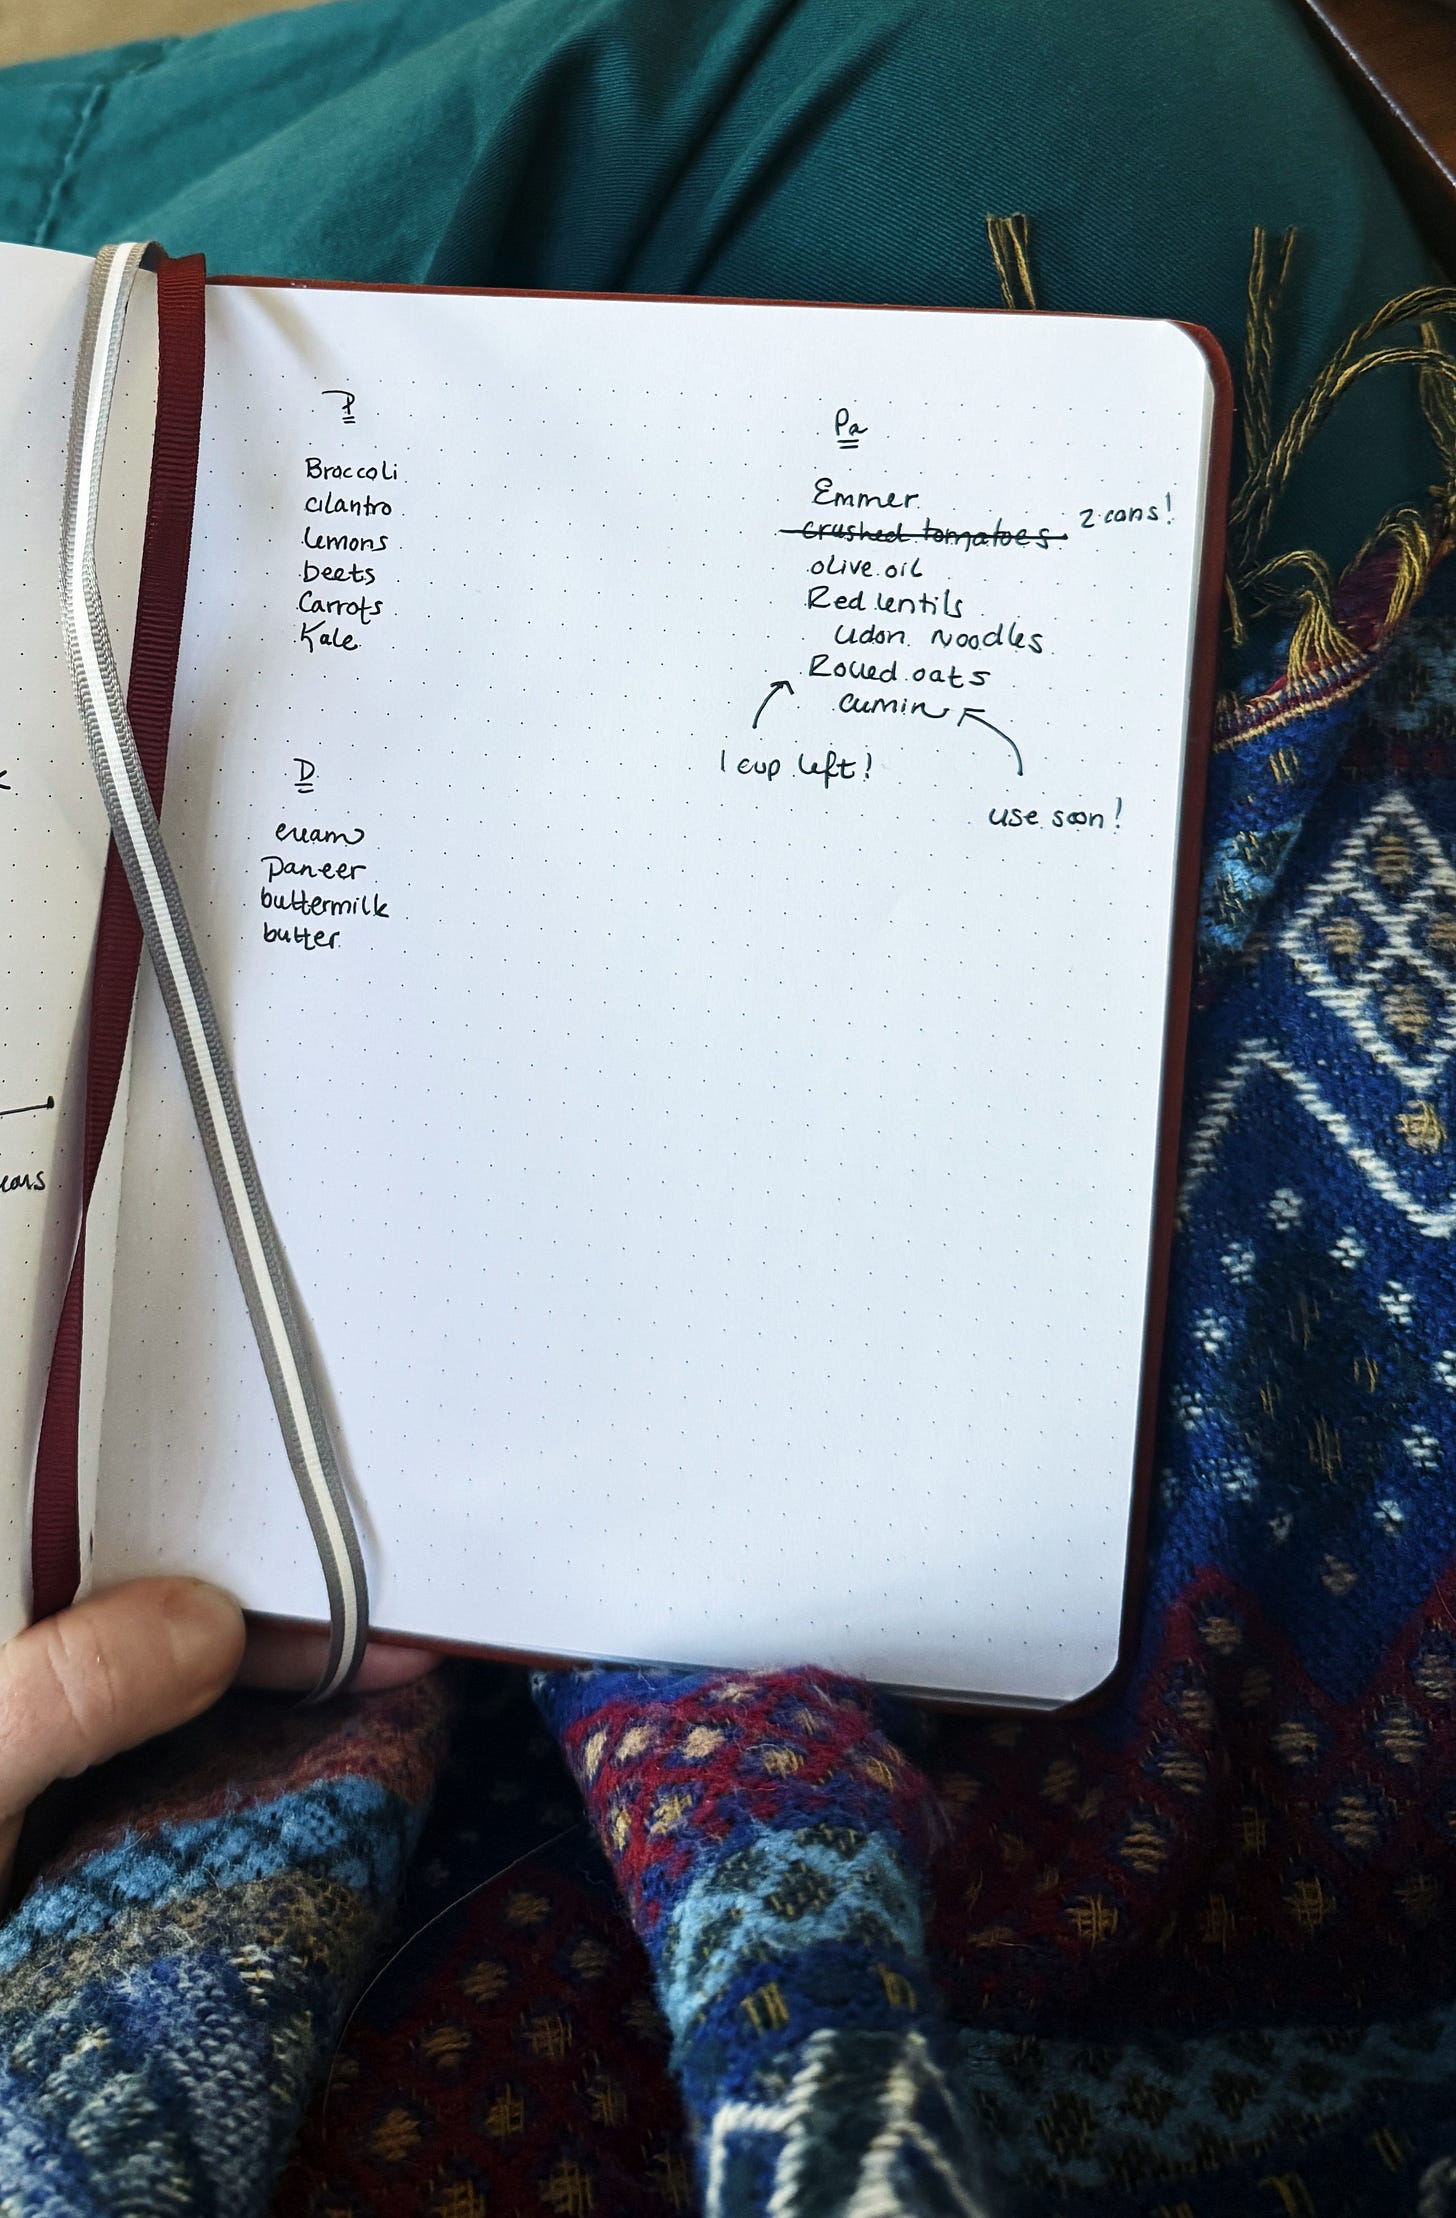 P
Broccoli
cilantro
lemons
beets
Carrots
Kale
D
cream
Paneer
buttermilk
butter
Pa
Emmer
crushed tomatoes 2 cans!
olive oil
Red lentils
Udon Noodles
Rolled oats
cumin
1 cup left!
use soon!